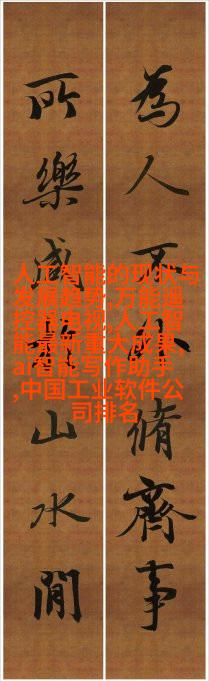 為人不外脩齊事
所樂咸山水間
人工智能的现状与
发展趋势,万能遥
控器电视,人工智
能最新重大成果,
ai智能写作助手
,中国工业软件公
司排名